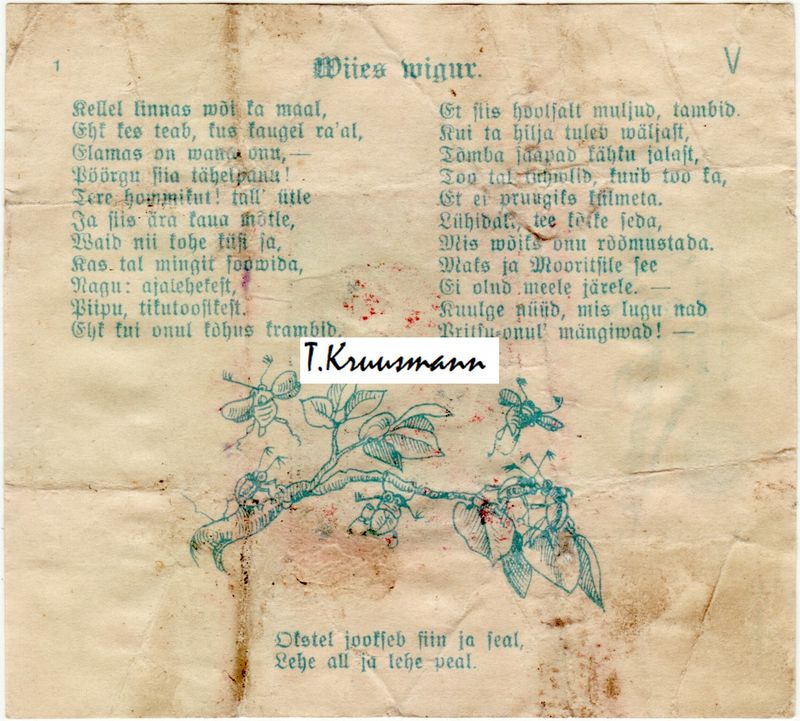 1
Wiies wigur.
V
Kellel linnas wõi ka maal,
Ehk kes teab, kus kaugel ra'al,
Elamas on wana onu, —
Pöörgu siia tähelpanu!
Tere hommikut! tall' ütle
Ja siis ära kaua mõtle,
Waid nii kohe küsi sa,
Kas tal mingit soowida,
Nagu: ajalehekest,
Piipu, tikutoosikest.
Ehk kui onul kõhus krambid,
Et siis hoolsalt muljud, tambid.
Kui ta hilja tuleb wäljast,
Tõmba saapad kähku jalast,
Too tal tuhwlid, kuub too ka,
Et ei pruugiks külmeta.
Lühidalt, tee kõike seda,
Mis wõiks onu rõõmustada.
Maks ja Mooritsile see
Ei olnd meele järele. —
Kuulge nüüd, mis lugu nad
Pritsu-onul' mängiwad! —
T.Kruusmann
Okstel jookseb siin ja seal,
Lehe all ja lehe peal.